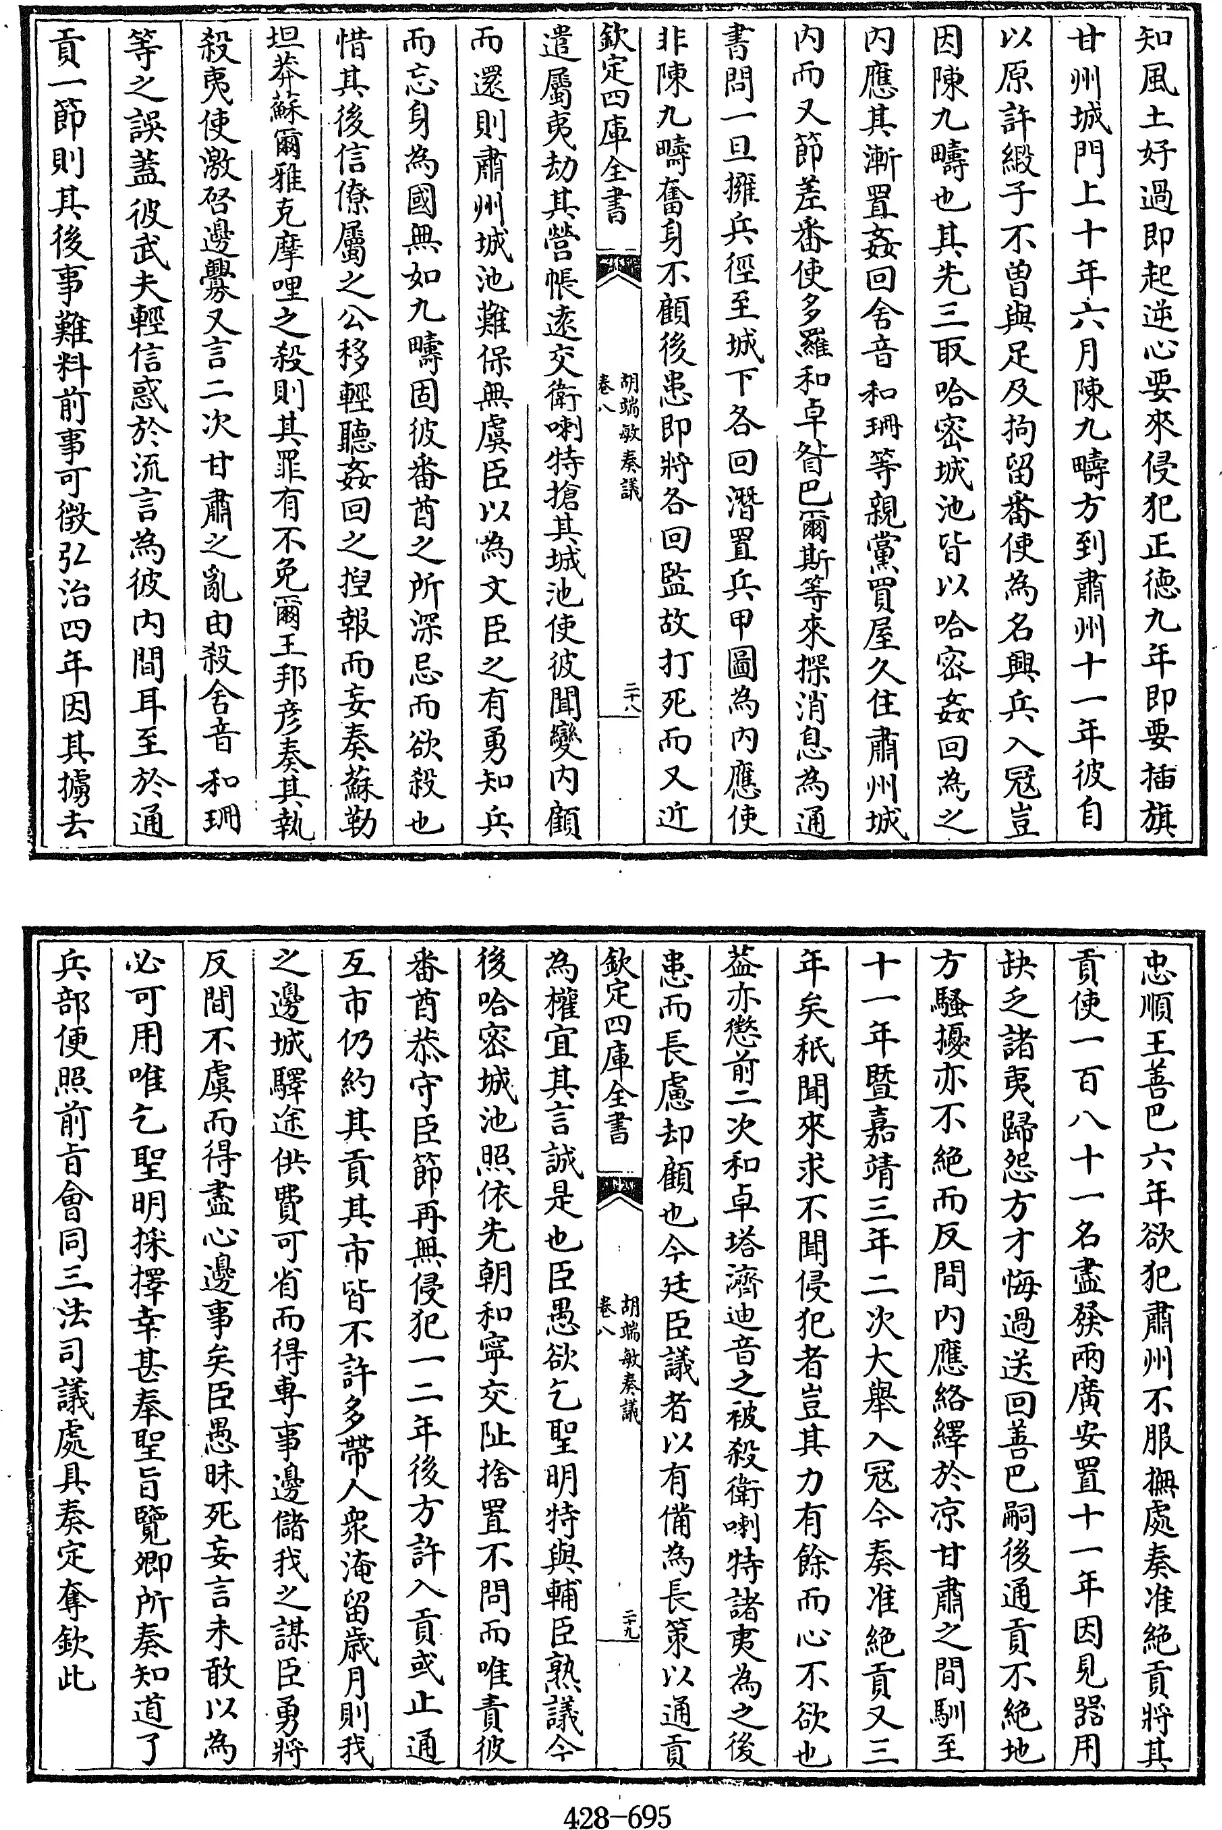 知風土好過即起逆心要來侵犯正德九年即要插旗
甘州城門上十年六月陳九疇方到肅州十一年彼自
以原許緞子不曾與足及拘留番使為名興兵入冦豈
因陳九疇也其先三取哈密城池皆以哈密姦回為之
内應其漸置姦回舍音和珊等親黨買屋久住肅州城
内而又節差番使多羅和卓㫮巴爾斯等來探消息為通
書問一旦擁兵徑至城下各回潛置兵甲圖為内應使
非陳九疇奮身不顧後患即將各回監故打死而又近
欽定四庫全書
胡端敏奏議
卷八
二十八
遣屬夷劫其營帳遠交衛喇特搶其城池使彼聞變内顧
而還則肅州城池難保無虞臣以為文臣之有勇知兵
而忘身為國無如九疇固彼番酋之所深忌而欲殺也
惜其後信僚屬之公移輕聽姦回之揑報而妄奏蘇勒
坦莽蘇爾雅克摩哩之殺則其罪有不免爾王邦彦奏其執
殺夷使激啓邊釁又言二次甘肅之亂由殺舍音和珊
等之誤蓋彼武夫輕信惑於流言為彼内間耳至於通
貢一節則其後事難料前事可徵弘治四年因其擄去
忠順王善巴六年欲犯肅州不服撫處奏准絶貢將其
貢使一百八十一名盡發兩廣安置十一年因見器用
缺乏諸夷歸怨方才悔過送回善巴嗣後通貢不絶地
方騷擾亦不絶而反間内應絡繹於凉甘肅之間馴至
十一年暨嘉靖三年二次大舉入冦今奏准絶貢又三
年矣秖聞來求不聞侵犯者豈其力有餘而心不欲也
葢亦懲前二次和卓塔濟迪音之被殺衛喇特諸夷為之後
患而長慮却顧也今廷臣議者以有備為長策以通貢
欽定四庫全書
胡端敏奏議
卷八
二十九
為權宜其言誠是也臣愚欲乞聖明特與輔臣熟議今
後哈密城池照依先朝和寧交阯捨置不問而唯責彼
番酋恭守臣節再無侵犯一二年後方許入貢或止通
互市仍約其貢其市皆不許多帶人衆淹留歲月則我
之邊城驛途供費可省而得專事邊儲我之謀臣勇將
反間不虞而得盡心邊事矣臣愚昧死妄言未敢以為
必可用唯乞聖明採擇幸甚奉聖旨覽卿所奏知道了
兵部便照前旨會同三法司議處具奏定奪欽此
428-695